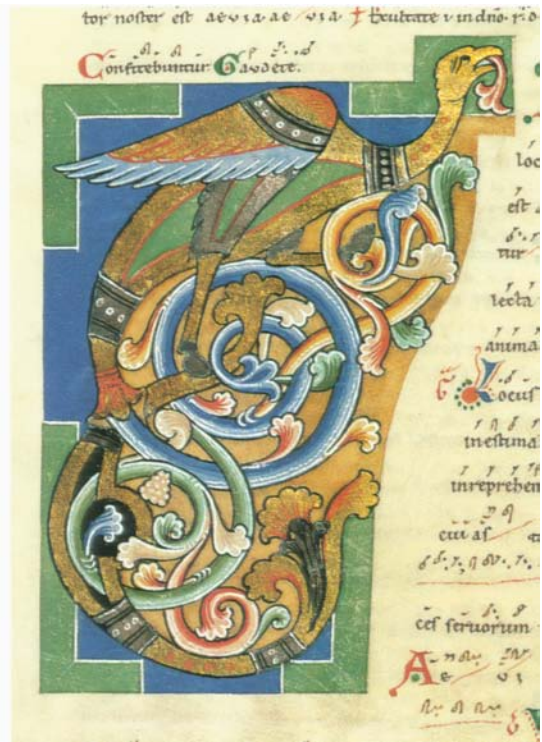 tor noster est aevia ae via
Confitebuntur Gavdete.
loc
est
tur
lecta
anima
Locus
inestima
inreprehen
cui as
ces seruorum
Ae vi